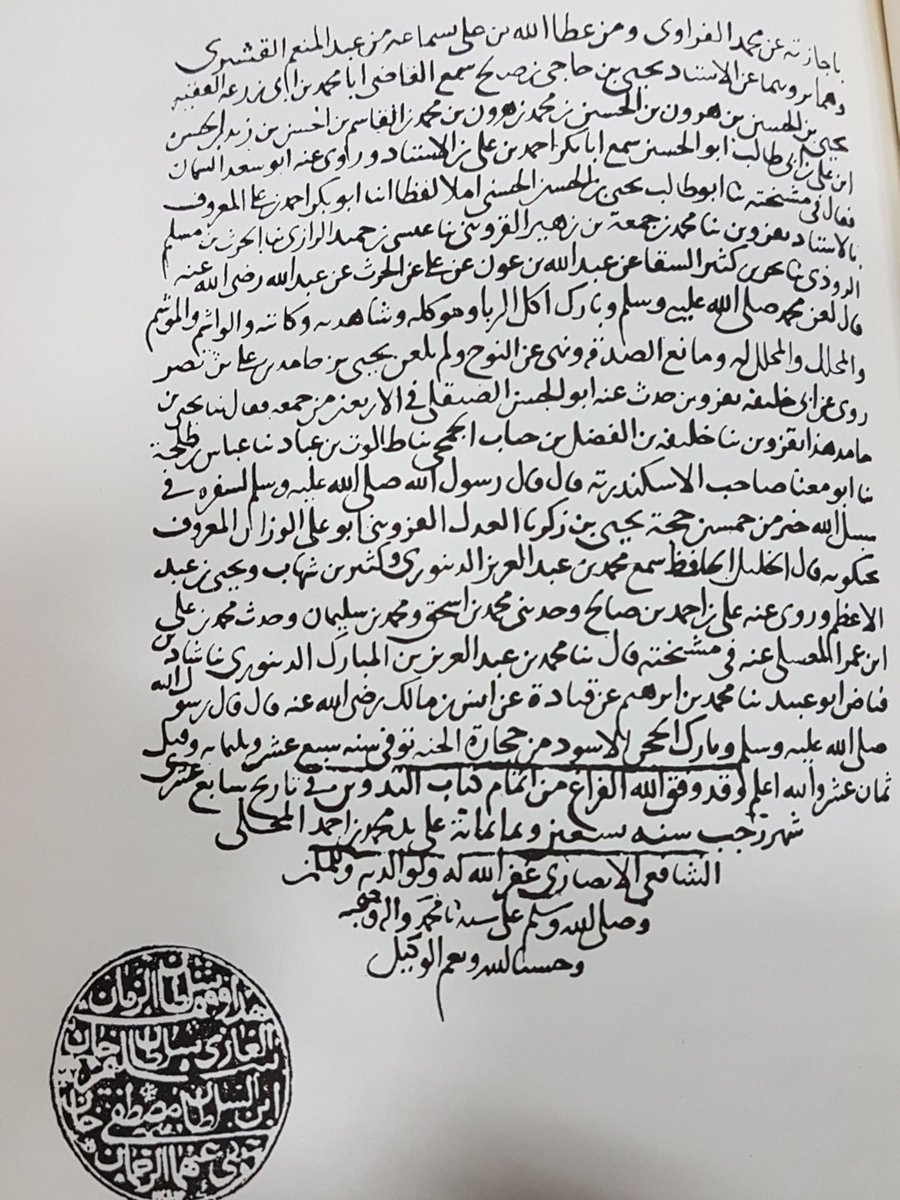 باجازته عن محمد الفراوى ومن عطا الله بن على بسماعه من عبد المنعم القشيرى
وهما يرويهما عن الاستاد يحيى بن حاجى بن صالح سمع القاضى ابا محمد بن ابى زرعه الفقيه
يحيى بن الحسين بن هرون بن الحسين بن محمد بن هرون بن محمد بن القاسم بن الحسن بن زيد بن الحسن
ابن على بن ابى طالب ابو الحسين سمع ابا بكر احمد بن على بن الاستاد وروى عنه ابو سعد السمان
فقال فى مشيخته نا ابو طالب يحيى بن الحسين الحسنى املا لفظا انا ابو بكر احمد بن على المعروف
بالاستاد بقزوين نا محمد بن جمعة بن زهير القزوينى نا عيسى بن حميد الرازى نا الحرث بن مسلم
الروذى نا بحر بن كثير السقا عن عبد الله بن عون عن على عن الحرث عن عبد الله رضى الله عنه
قال لعن محمد صلى الله عليه وسلم وبارك اكل الربا وموكله وشاهديه وكاتبه والواشم والموشم
والمحلل والمحلل له ومانع الصدقه ونهى عن النوح ولم يلعن يحيى بن حامد بن على بن نصر
روى عن ابى خليفه بقزوين حدث عنه ابو الحسن الصيقلى فى الاربعين من جمعه فقال نا يحيى بن
حامد هذا بقزوين نا خليفه بن الفضل بن حباب الجمحى نا طالوت بن عباد نا عباس بن طلحة
نا ابو معنا صاحب الاسكندرية قال قال رسول الله صلى الله عليه وسلم لسفره فى
سبيل الله خير من خمسين حجة يحيى بن زكريا العدل القزوينى ابو على الوزان المعروف
بحكويه قال الخليل الحافظ سمع محمد بن عبد العزيز الدينورى وكثير بن شهاب ويحيى بن عبد
الاعظم وروى عنه على بن احمد بن صالح وحدثنى محمد بن اسحق ومحمد بن سليمان وحدث محمد بن على
ابن عمر المعسلى عنه فى مشيخته قال نا محمد بن عبد العزيز بن المبارك الدينورى نا شاد بن
فياض ابو عبيد نا محمد بن ابرهيم عن قتادة عن انس بن مالك رضى الله عنه قال قال رسول الله
صلى الله عليه وسلم وبارك الحجر الاسود من حجارة الجنه توفى سنه سبع عشر وثلثمايه وقيل
ثمان عشر والله اعلم وقد وفق الله الفراغ من اتمام كتاب التدوين فى تاريخ سابع عشرى
شهر رجب سنه تسعين وثمانمائة على يد محمد بن احمد المحلى
الشافعى الانصارى غفر الله له ولوالديه وللمسلمين
وصلى الله وسلم على سيدنا محمد واله وصحبه
وحسبنا الله ونعم الوكيل
هذا وقف سلطان الزمان
الغازى سلطان سليم خان
ابن السلطان مصطفى خان
عفى عنهما الرحمان